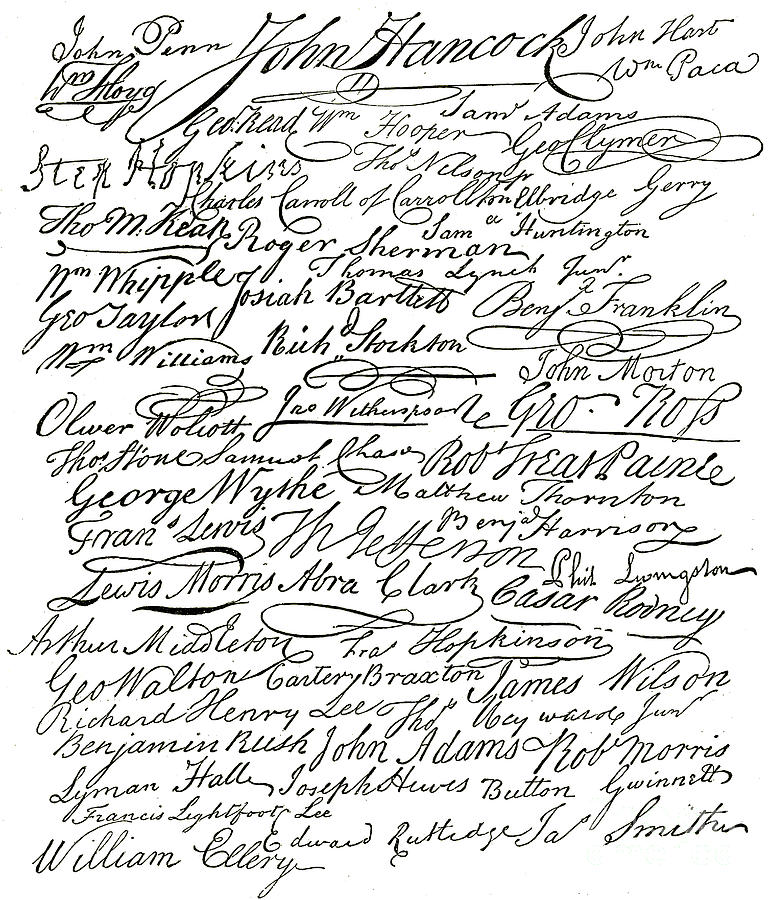 John Penn John Hancock John Hart
Wm Floyd Wm Paca
Geo. Read Wm Hooper Saml Adams
Geo Clymer
Step Hopkins Thos Nelson jr
Charles Carroll of Carrollton Elbridge Gerry
Tho M. Kean Roger Sherman Saml Huntington
Wm Whipple Thomas Lynch Junr.
Josiah Bartlett Benja Franklin
Geo Taylor Richd Stockton
Wm Williams John Morton
Oliver Wolcott Jno Witherspoon Geo. Ross
Thos Stone Samuel Chase Robt Treat Paine
George Wythe Matthew Thornton
Frans Lewis Th Jefferson Benja Harrison
Lewis Morris Abra Clark Phil. Livingston
Casar Rodney
Arthur Middleton Fras Hopkinson
Geo Walton Carter Braxton James Wilson
Richard Henry Lee Thos Heyward Junr
Benjamin Rush John Adams Robt Morris
Lyman Hall Joseph Hewes Button Gwinnett
Francis Lightfoot Lee
William Ellery Edward Rutledge Jas Smith